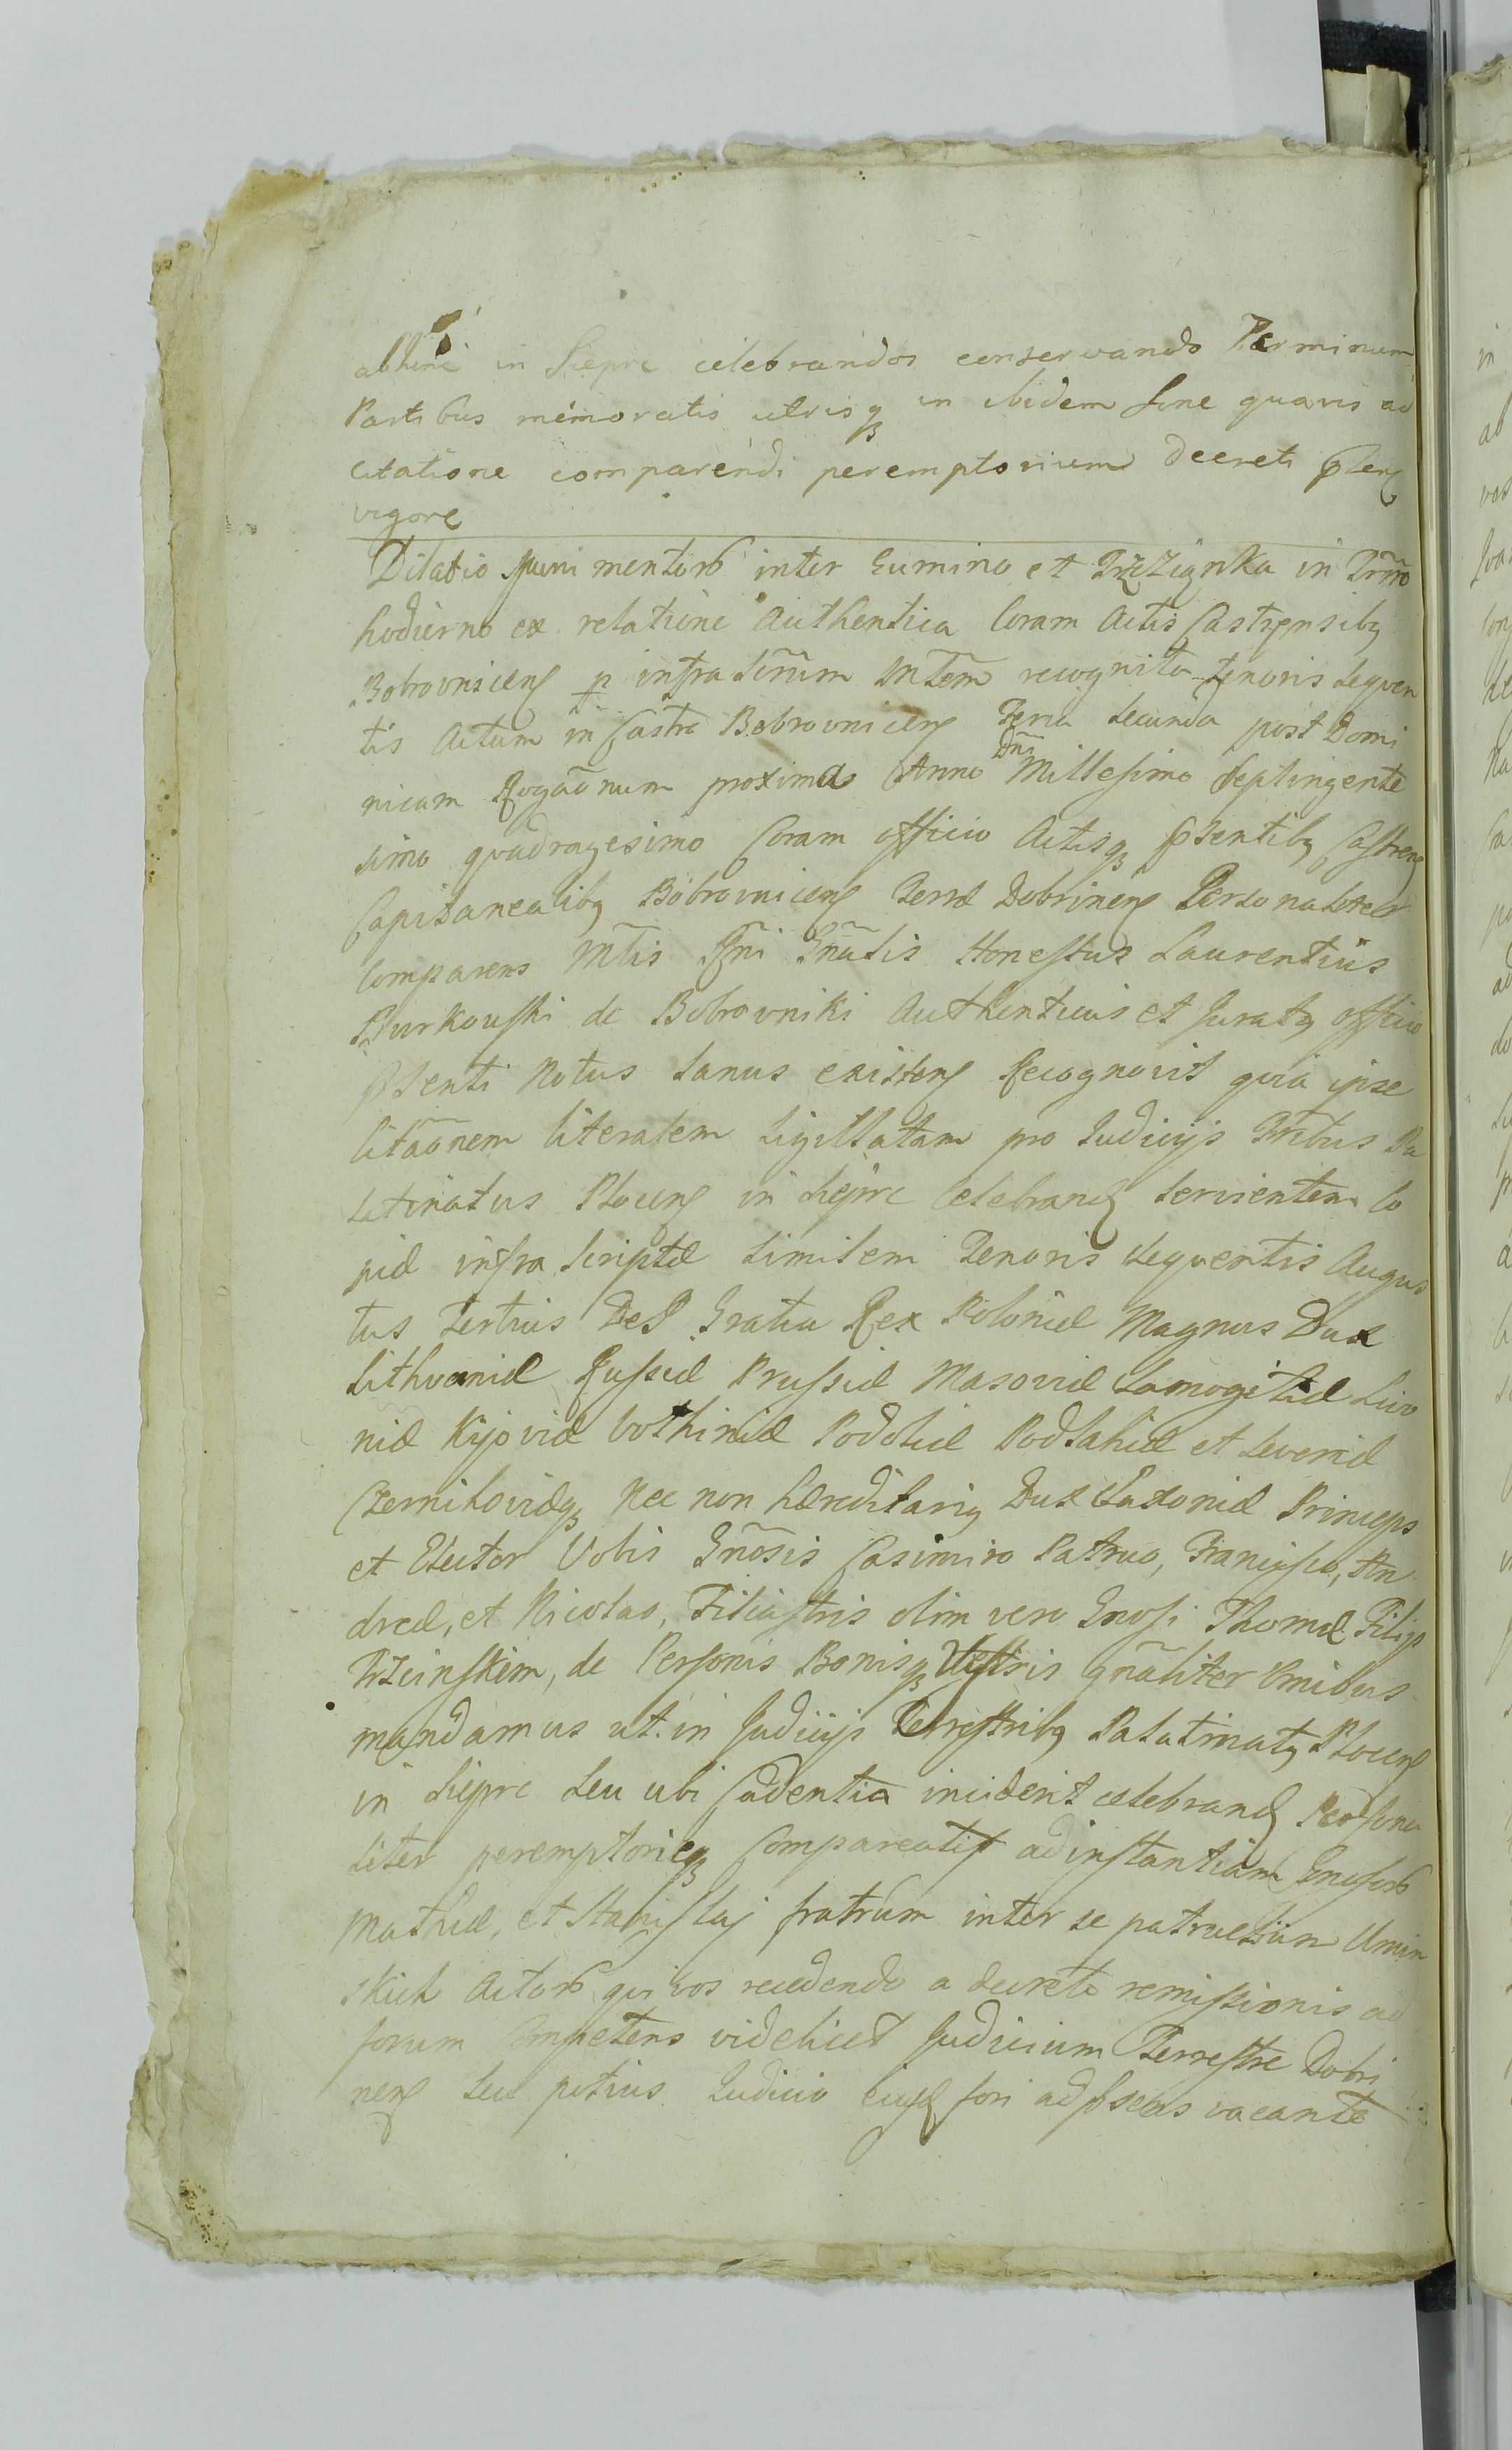 abhinc in Siepre celebrandos conservando Terminum
Partibus memoratis utrisq in ibidem sine quavis ad
citatione comparendi peremptorium decreti pſtens
vigore
Dilatio munimentorb inter Gumino et Trzciąnka in Trmo
hodierno ex relatione Authentica Coram Actis Castrensiby
Bobrovnicens p infra scrium Mtem recognita tenoris sequen
tis Actum in Castro Bobrovnicens Feria secunda post Domi
nicam Rogãonum proxima Anno Dni Millesimo Septingente
simo quadragesimo Coram officio Actisq pſentiby Castrens
Capitanealiby Bobrovnicens Terræ Dobrinens Personaliter
Comparens Mtis Gñalis Honestus Laurentius
Burkouski de Bobrovniki Authenticus et Juraty officio
pſenti Notus sanus existens Recognovit quia ipse
Citãonem literalem sigillatam pro Judicijs Trribus Pa
latinatus Plocens in Siepre Celebrand servientem Co
piæ infra scriptæ similem Tenoris sequentis Augus
tus Tertius DeI Gratia Rex Poloniæ Magnus Dux
Lithvaniæ Russiæ Prussiæ Masoviæ Samogitiæ Livo
niæ Kijoviæ Volhiniæ Podoliæ Podlahiæ et Severiæ
Czernihoviæq Nec non hæreditariy Dux Saxoniæ Princeps
et Elector Vobis Gñosis Casimiro Patruo, Francisco, An
dreæ, et Nicolao, Filiastris olim vero Gnosi Thomæ Filijs
Trzcinskim, de Personis Bonisq Vestris gñaliter omibus
mandamus ut in Judicijs Terrestriby Palatinaty Plocens
in Siepre seu ubi Cadentia inciderit celebrand Persona
liter peremptorieq Compareatis ad instantiam Gnosorb
Mathiæ, et Stanislaj fratrum inter se patruelium Umin
skich Actorb, qui vos recedendo a decreto remissionis ad
forum Competens videlicet Judicium Terrestre Dobri
nens seu potius Judicio eiusd fori ad pſens vacante